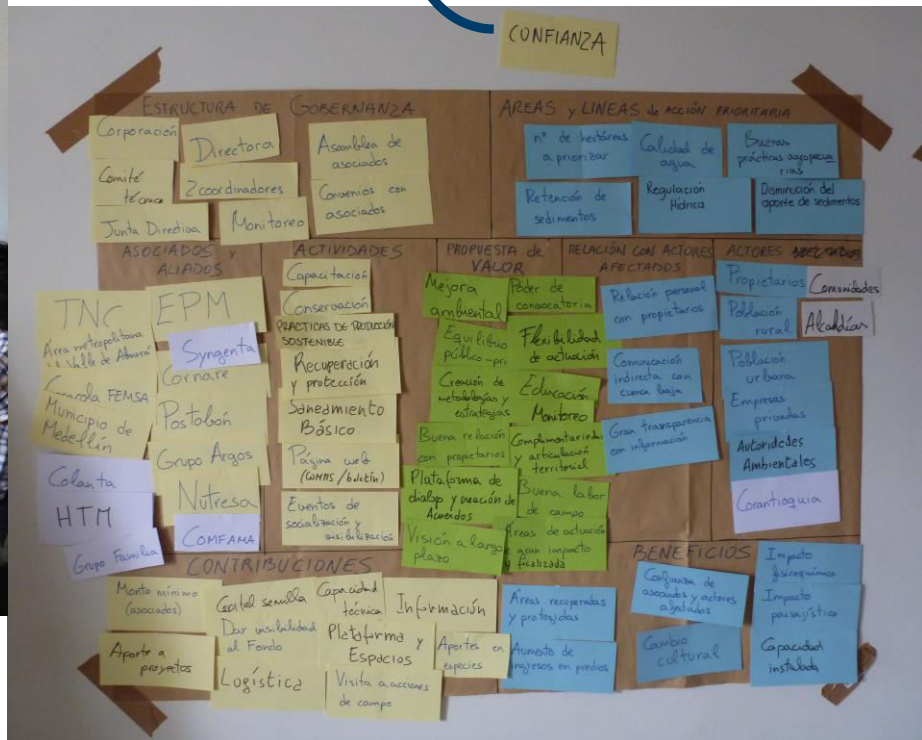 CONFIANZA
ESTRUCTURA DE GOBERNANZA
Corporación
Directora
Asamblea de
asociados
Comité
técnico
2 coordinadores
Convenios con
asociados
Junta Directiva
Monitoreo
AREAS y LINEAS de ACCIÓN PRIORITARIA
nº de hectáreas
a priorizar
Calidad de
agua
Buenas
prácticas agropecua
rias
Retención de
sedimentos
Regulación
Hídrica
Disminución del
aporte de sedimentos
ASOCIADOS y
ALIADOS
TNC
EPM
Área metropolitana
Valle de Aburrá
Syngenta
FEMSA
Cornare
Municipio de
Medellín
Postobón
Colanta
Grupo Argos
HTM
Nutresa
Grupo Familia
COMFAMA
ACTIVIDADES
Capacitación
Conservación
PRACTICAS DE PRODUCCIÓN
SOSTENIBLE
Recuperación
y protección
Saneamiento
Básico
Página web
(WMMS / boletín)
Eventos de
socialización y
visibilización
PROPUESTA de
VALOR
Mejora
ambiental
Poder de
convocatoria
Equilibrio
público-pri
Flexibilidad
de actuación
Creación de
metodologías y
estrategias
Educación
Monitoreo
Buena relación
con propietarios
Complementariedad
y articulación
territorial
Plataforma de
dialogo y creación de
Acuerdos
Buena labor
de campo
Visión a largo
plazo
Áreas de actuación
gran impacto
y focalizada
RELACIÓN CON ACTORES
AFECTADOS
Relación personal
con propietarios
Comunicación
indirecta con
cuenca baja
Gran transparencia
con información
ACTORES
Propietarios
Comunidades
Población
rural
Alcaldías
Población
urbana
Empresas
privadas
Autoridades
Ambientales
Corantioquia
CONTRIBUCIONES
Monto mínimo
(asociados)
Capital semilla
Dar visibilidad
al Fondo
Capacidad
técnica
Información
Aporte a
proyectos
Logística
Plataforma y
Espacios
Aportes en
especies
Visita a acciones
de campo
BENEFICIOS
Áreas recuperadas
y protegidas
Confianza de
asociados y actores
afectados
Impacto
fisicoquímico
Impacto
paisajístico
Aumento de
ingresos en predios
Cambio
cultural
Capacidad
instalada